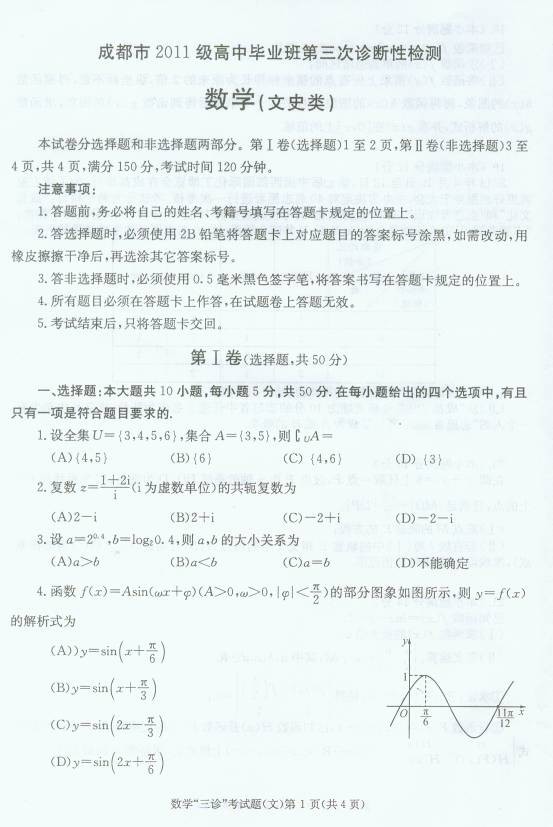 成都市 2011 级高中毕业班第三次诊断性检测
数学(文史类)
本试卷分选择题和非选择题两部分。第Ⅰ卷(选择题)1 至 2 页,第Ⅱ卷(非选择题)3 至
4 页,共 4 页,满分 150 分,考试时间 120 分钟。
注意事项:
1.答题前,务必将自己的姓名、考籍号填写在答题卡规定的位置上。
2.答选择题时,必须使用 2B 铅笔将答题卡上对应题目的答案标号涂黑,如需改动,用
橡皮擦擦干净后,再选涂其它答案标号。
3.答非选择题时,必须使用 0.5 毫米黑色签字笔,将答案书写在答题卡规定的位置上。
4.所有题目必须在答题卡上作答,在试题卷上答题无效。
5.考试结束后,只将答题卡交回。
第Ⅰ卷(选择题,共 50 分)
一、选择题:本大题共 10 小题,每小题 5 分,共 50 分.在每小题给出的四个选项中,有且
只有一项是符合题目要求的.
1.设全集 U={3,4,5,6},集合 A={3,5},则∁UA=
(A){4,5} (B){6} (C){4,6} (D){3}
2.复数 z=(1+2i)/i(i 为虚数单位)的共轭复数为
(A)2−i (B)2+i (C)−2+i (D)−2−i
3.设 a=2^0.4,b=log₂0.4,则 a,b 的大小关系为
(A)a>b (B)a<b (C)a=b (D)不能确定
4.函数 f(x)=Asin(ωx+φ)(A>0,ω>0,|φ|<π/2)的部分图象如图所示,则 y=f(x)
的解析式为
(A))y=sin(x+π/6)
(B)y=sin(x+π/3)
(C)y=sin(2x−π/3)
(D)y=sin(2x+π/6)
y
1
O π/6 11π/12 x
数学“三诊”考试题(文)第 1 页(共 4 页)